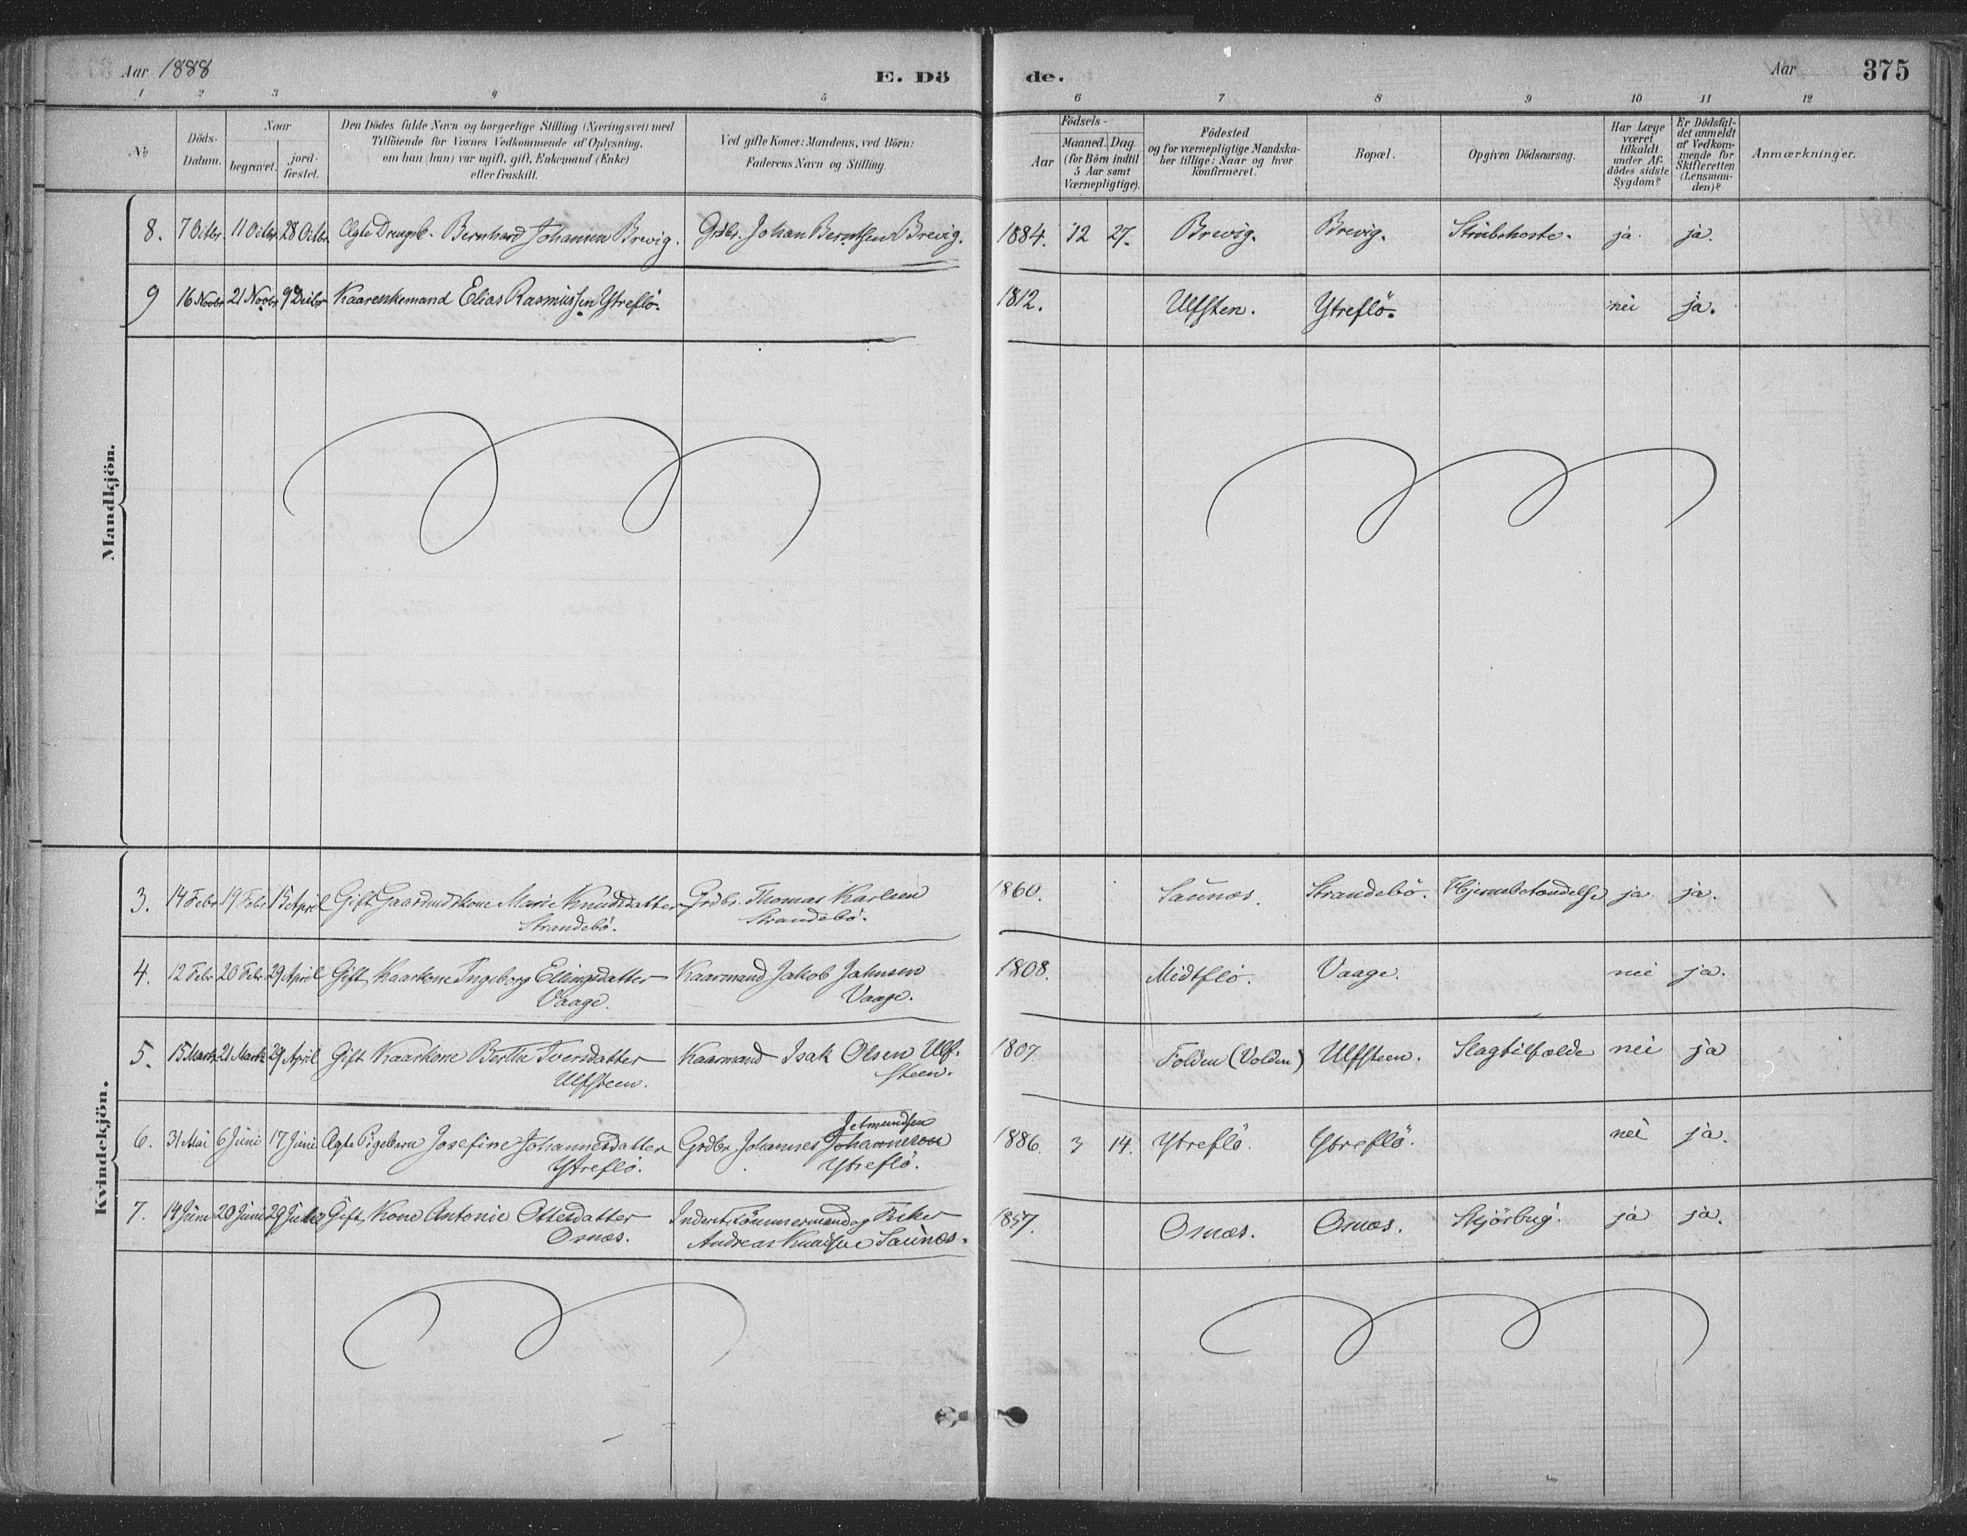 Aar 1888
E. Dö
de.
Aar
375
1 2 3 4 5 6 7 8 9 10 11 12
№
Döds-
Datum.
Naar
begravet.
jord-
fæstet.
Den Dödes fulde Navn og borgerlige Stilling (Næringsvei) med
Tilföiende for Voxnes Vedkommende af Oplysning,
om han (hun) var ugift, gift, Enkemand (Enke)
eller fraskilt.
Ved gifte Koner: Mandens, ved Börn:
Faderens Navn og Stilling.
Födsels-
Aar
Maaned. Dag
(for Börn indtil
5 Aar samt
Værnepligtige).
Födested
og for værnepligtige Mandska-
ber tillige: Naar og hvor
konfirmeret.
Bopæl.
Opgiven Dödsaarsag.
Har Læge
været
tilkaldt
under Af-
dödes sidste
Sygdom?
Er Dödsfal-
det anmeldt
af Vedkom-
mende for
Skifteretten
(Lensman-
den)?
Anmærkninger.
Mandkjön.
8. 7 Octbr. 11 Octbr. 28 Octbr. Ægte Drengeb. Bernhard Johansen Brevig. Grdbr. Johan Berntsen Brevig. 1884. 12 27. Brevig. Brevig. Strubehoste. ja. ja.
9 16 Novbr. 21 Novbr. 9 Decbr. Kaarenkemand Elias Rasmussen Ytreflö. 1812. Ulfsten. Ytreflö. nei ja.
Kvindekjön.
3. 14 Febr. 19 Febr. 15 April Gift Gaardmdskone Marie Knudsdatter Grdbr. Thomas Karlsen 1860. Saunes. Strandebö. Hjernebetændelse ja. ja.
Strandebö. Strandebö.
4. 12 Febr. 20 Febr. 29 April Gift Kaarkone Ingeborg Ellingsdatter Kaarmand Jakob Jahnsen 1808. Midtflö. Vaage. nei ja.
Vaage. Vaage.
5. 15 Marts 21 Marts 29 April Gift Kaarkone Berthe Iversdatter Kaarmand Isak Olsen Ulf- 1807. Folden (Volden) Ulfsteen. Slagtilfælde nei ja
Ulfsteen. steen.
Jetmundsen
6. 31 Mai 6 Juni 17 Juni Ægte Pigebarn Josefine Johannesdatter Grdbr. Johannes Johannesen 1886. 3 14. Ytreflö. Ytreflö. nei ja.
Ytreflö. Ytreflö.
7. 14 Juni 20 Juni 29 Juli Gift Kone Antonie Ottesdatter Inderst, Tömmermand og Fisker 1857. Osnæs. Osnæs. Skjörbug. ja ja.
Osnæs. Andreas Knudsen Saunes.